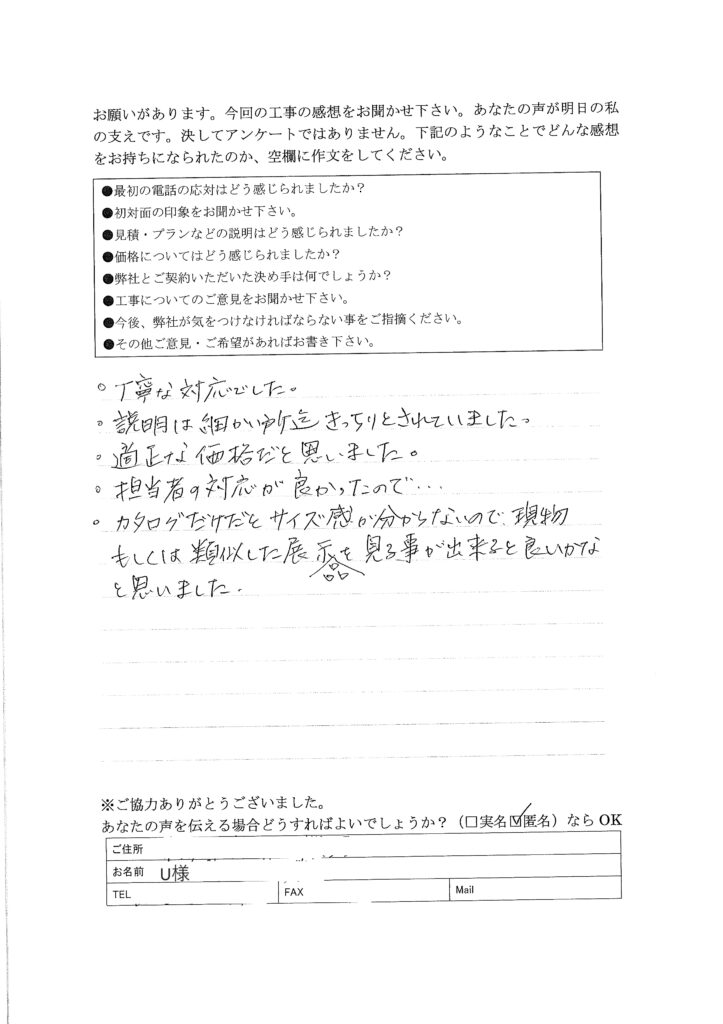 お願いがあります。今回の工事の感想をお聞かせ下さい。あなたの声が明日の私
の支えです。決してアンケートではありません。下記のようなことでどんな感想
をお持ちになられたのか、空欄に作文をしてください。
●最初の電話の応対はどう感じられましたか？
●初対面の印象をお聞かせ下さい。
●見積・プランなどの説明はどう感じられましたか？
●価格についてはどう感じられましたか？
●弊社とご契約いただいた決め手は何でしょうか？
●工事についてのご意見をお聞かせ下さい。
●今後、弊社が気をつけなければならない事をご指摘ください。
●その他ご意見・ご希望があればお書き下さい。
○ 丁寧な対応でした。
○ 説明は細かい所迄きっちりとされていました。
○ 適正な価格だと思いました。
○ 担当者の対応が良かったので…
○ カタログだけだとサイズ感が分からないので、現物
もしくは類似した展示品を見る事が出来ると良いかな
と思いました。
※ご協力ありがとうございました。
あなたの声を伝える場合どうすればよいでしょうか？（□実名☑匿名）ならOK
ご住所
お名前 U様
TEL FAX Mail